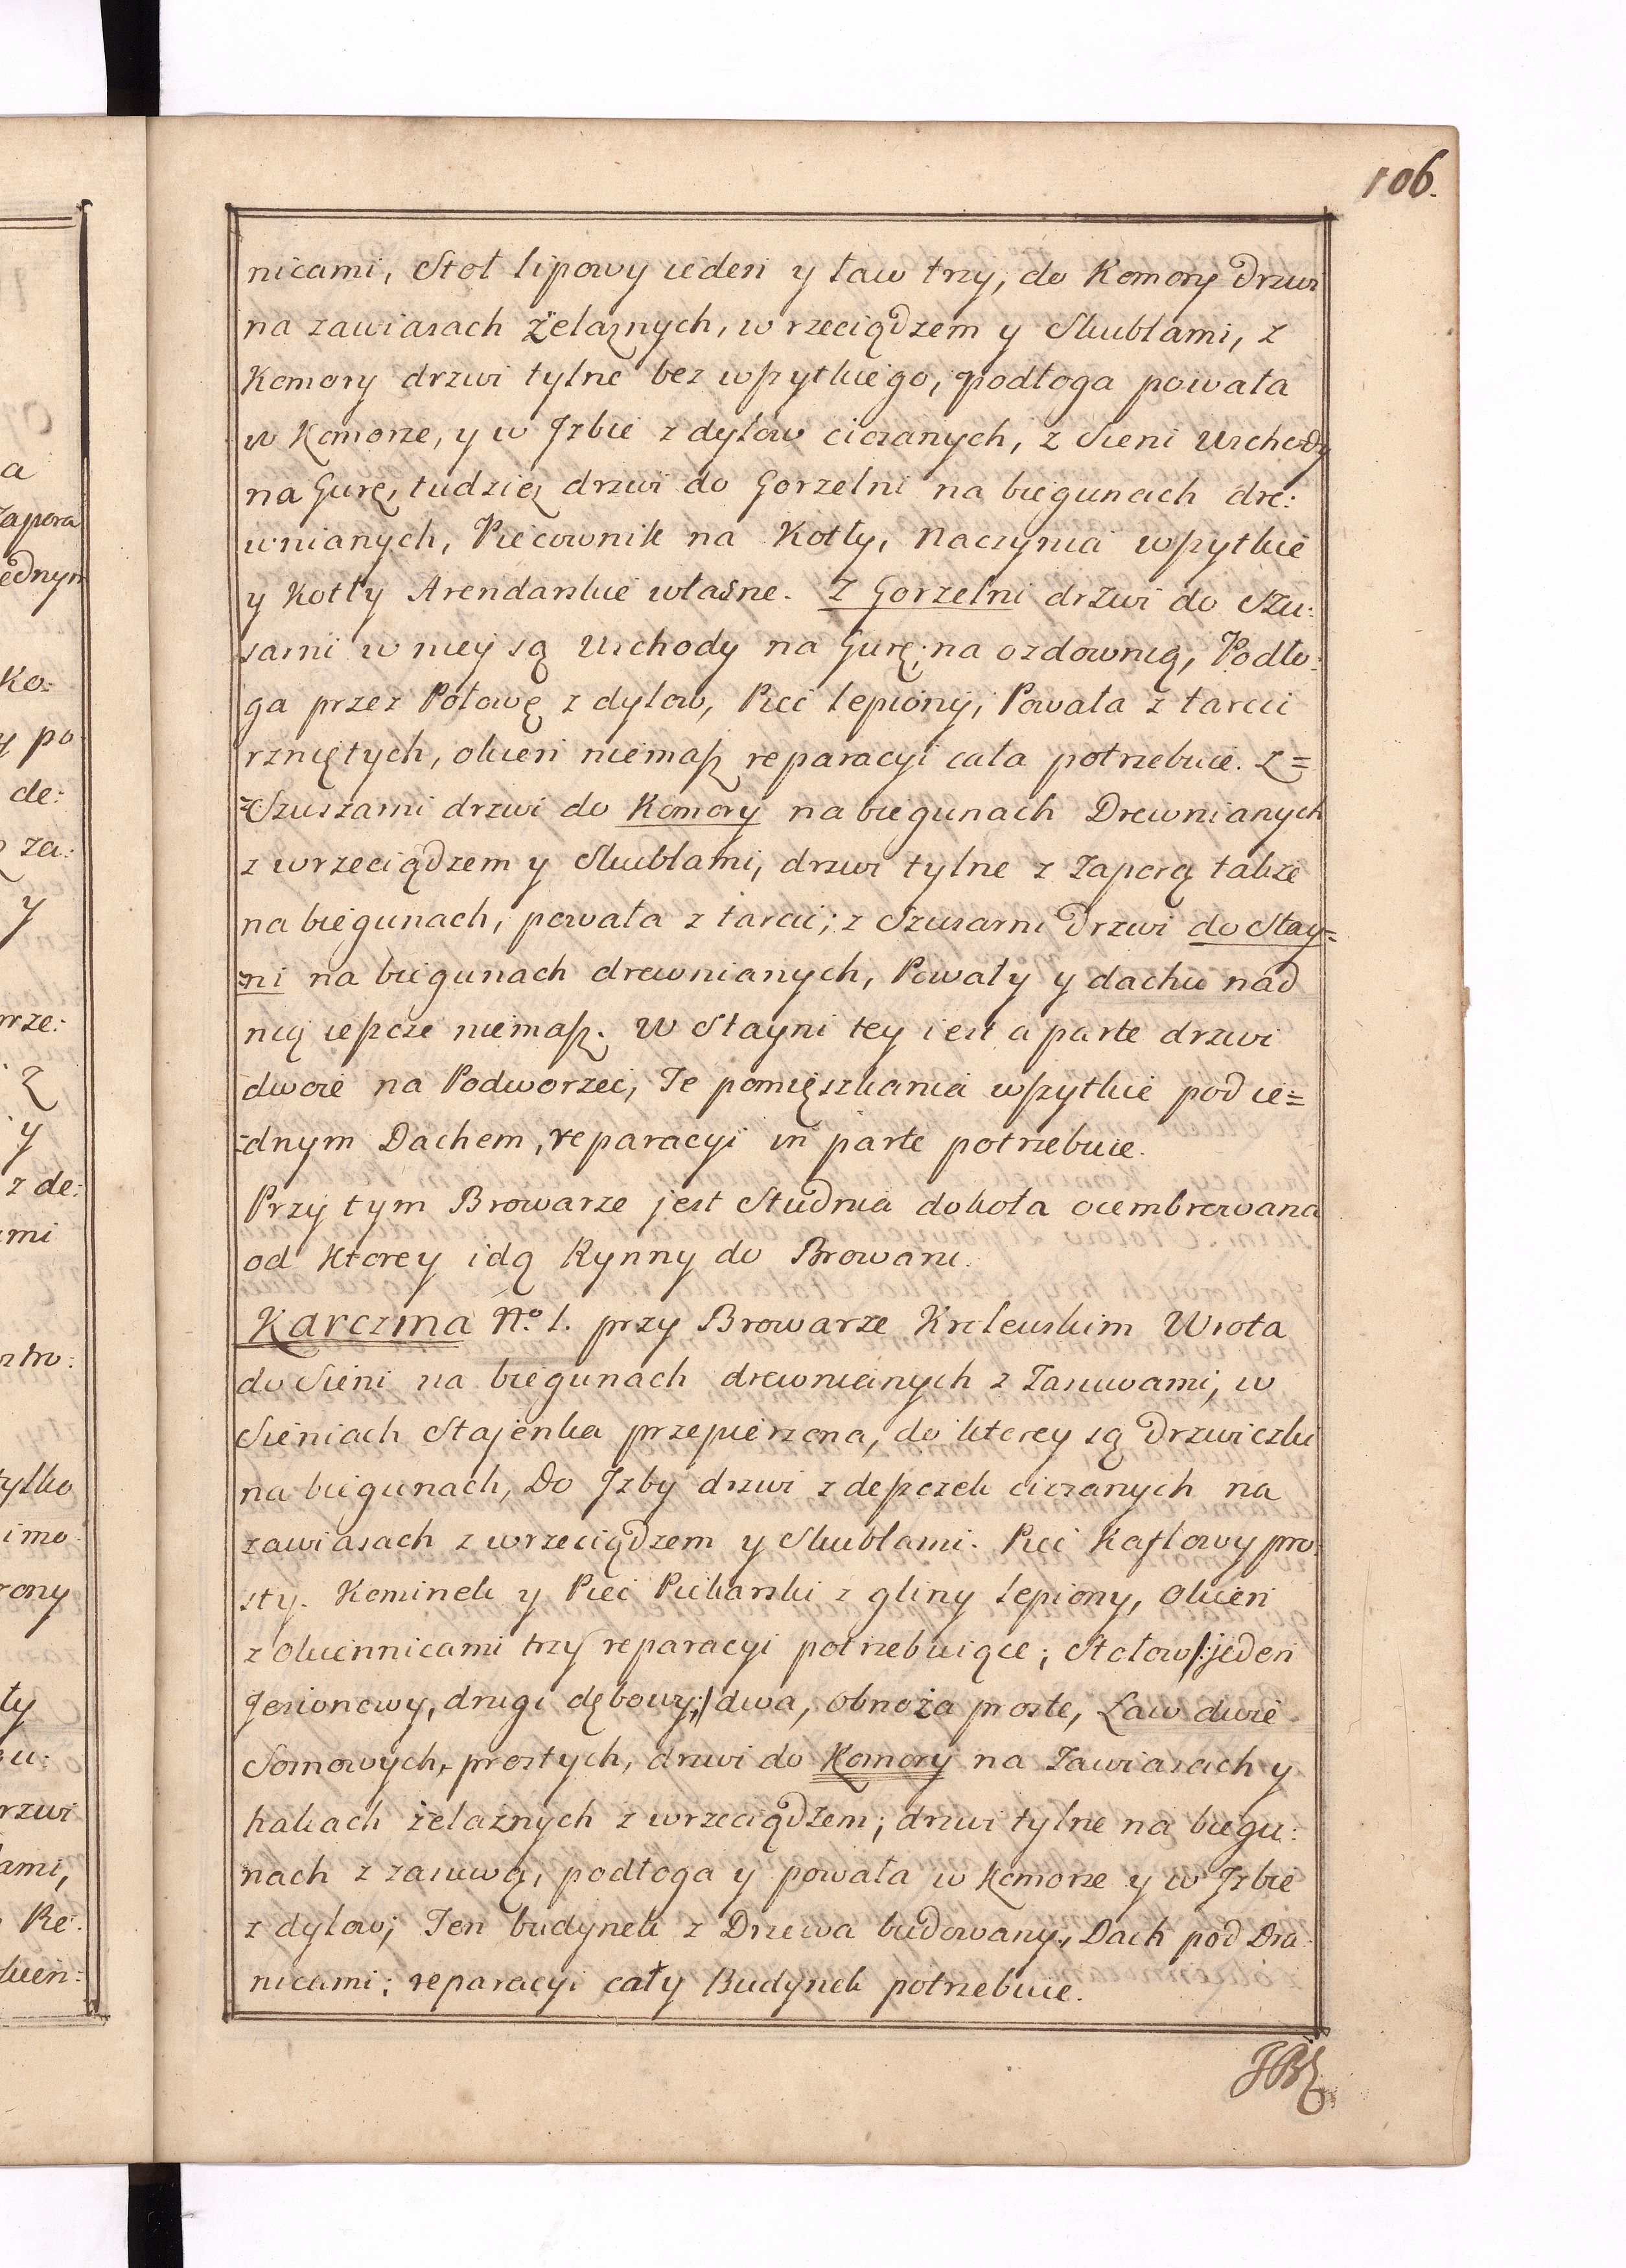 106.
nicami, Stoł lipowy ieden y ław trzy, do Komory drzwi
na zawiasach żelaznych, wrzeciądzem y Skubłami, z
Komory drzwi tylne bez wszytkiego, podłoga powała
w Komorze, y w Jzbie z dylow ciosanych, z Sieni Wschody
na Gurę, tudzież drzwi do Gorzelni na biegunach dre:
wnianych, Piecownik na Kotły, Naczynia wszytkie
y Kotły Arendarskie własne. Z Gorzelni drzwi do Szu:
sarni w niey są Wschody na Gurę, na ozdownią, Podło:
ga przez Połowę z dylow, Piec lepiony, Powała z tarcic
rzniętych, okien niemasz reparacyi cała potrzebuie. Z=
=Szuszarni drzwi do Komory na biegunach Drewnianych
z wrzeciądzem y Skubłami, drzwi tylne z Zaporą także
na biegunach, powała z tarcic; z Szusarni Drzwi do Stay=
=ni na biegunach drewnianych, Powały y dachu nad
nią ieszcze niemasz. W Stayni tey iest a parte drzwi
dwoie na Podworzec, Te pomięszkania wszytkie pod ie=
=dnym Dachem, reparacyi in parte potrzebuie.
Przy tym Browarze jest Studnia dokoła ocembrowana
od Ktorey idą Rynny do Browaru.
Karczma No. 1. przy Browarze Krolewskim Wrota
do Sieni na biegunach drewnianych z Zasuwami, w
Sieniach Stajenka przepierzona, do ktorey są Drzwiczki
na biegunach, Do Jzby drzwi z deszczek ciosanych na
zawiasach z wrzeciądzem y Skubłami. Piec Kaflowy pro:
sty. Kominek y Piec Piekarski z gliny lepiony, Okien
z Okiennicami trzy reparacyi potrzebuiące; Stołow /:jeden
Jesionowy, drugi dębowy:/ dwa, obnoża proste, Ław dwie
Sosnowych, prostych, drzwi do Komory na Zawiasach y
hakach żelaznych z wrzeciądzem; drzwi tylne na biegu:
nach z zasuwą, podłoga y powała w Komorze y w Jzbie
z dylow; Ten budynek z Drzewa budowany, Dach pod Dra:
nicami: reparacyi cały Budynek potrzebuie.